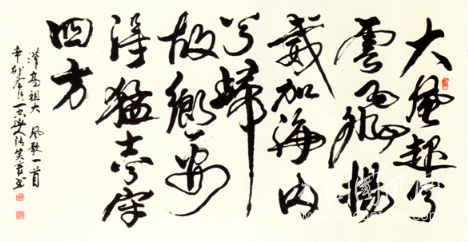 大風起兮
雲飛揚
威加海内
兮歸
故鄉安
得猛士兮守
四方
漢高祖大風歌一首